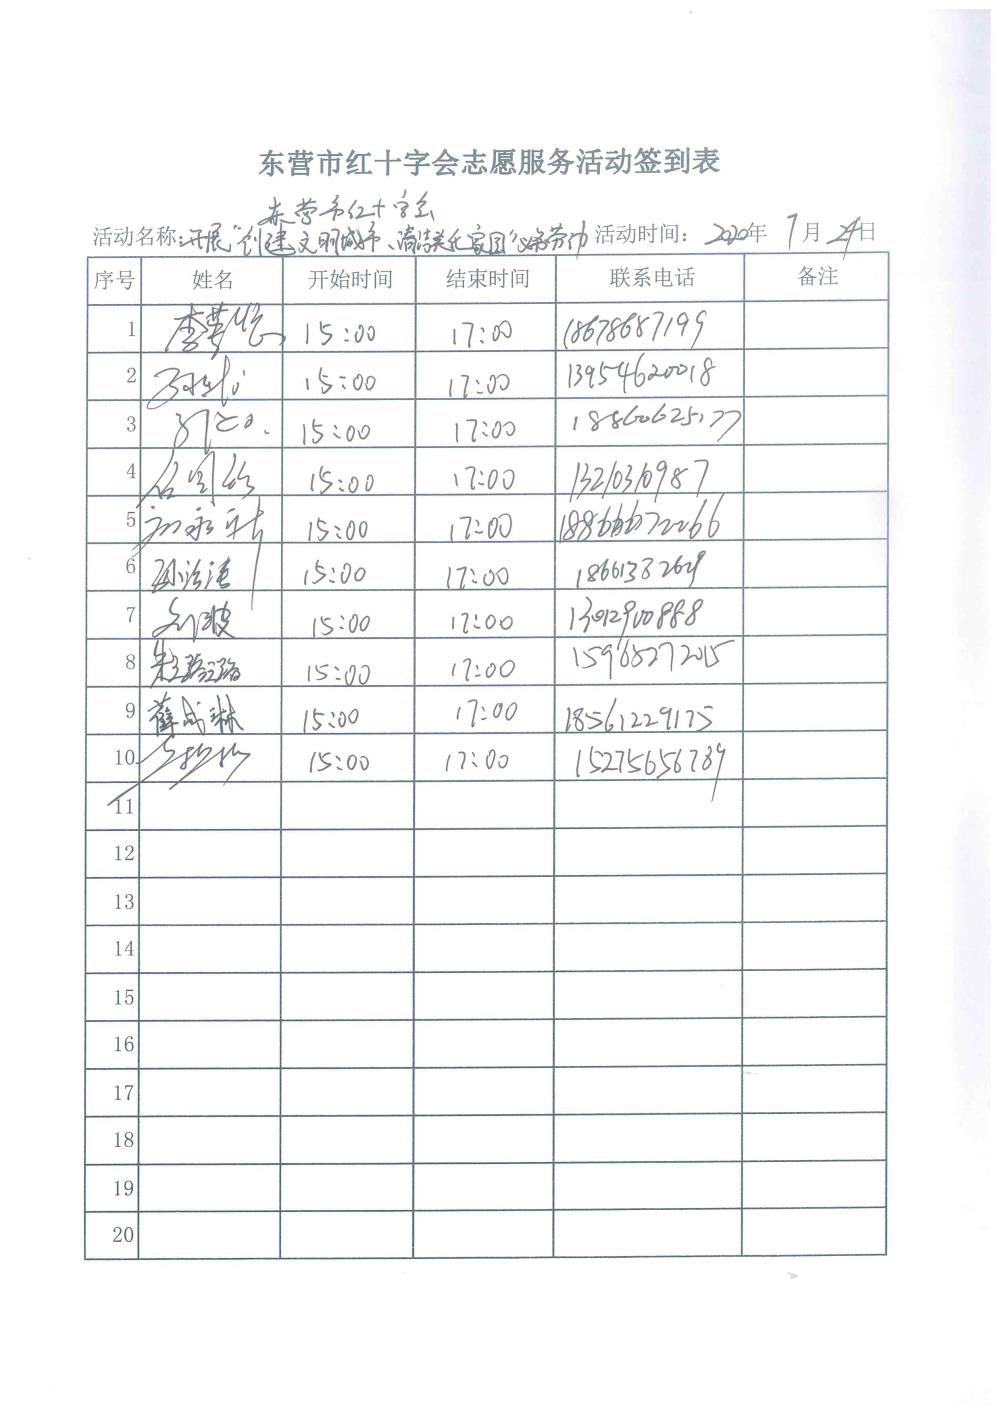 东营市红十字会志愿服务活动签到表
东营市红十字会
活动名称：开展“创建文明城市、清洁美化家园”义务劳动 活动时间： 2020年 7月 24日
序号 姓名 开始时间 结束时间 联系电话 备注
1 李梦 15:00 17:00 18678687199
2 15:00 17:00 13954620018
3 15:00 17:00
4 15:00 17:00 13210310987
5 15:00 17:00
6 15:00 17:00
7 刘波 15:00 17:00 13012900888
8 朱璐璐 15:00 17:00 15965272015
9 薛成琳 15:00 17:00 18561229175
10 15:00 17:00 15275656789
11
12
13
14
15
16
17
18
19
20